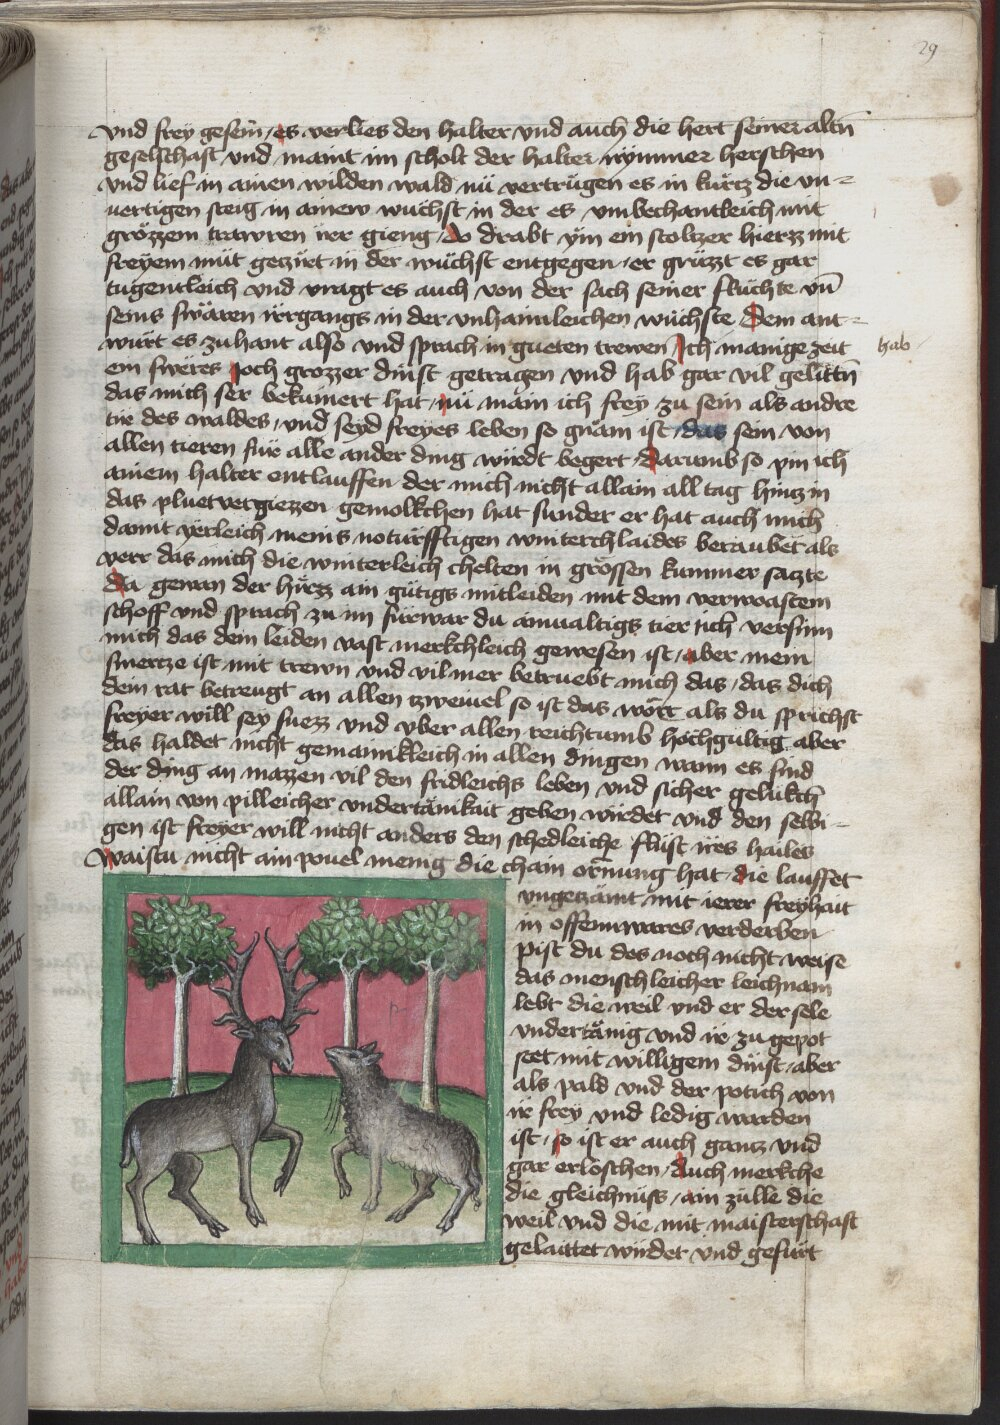 29
vnd frey gesein / es verlies den halter vnd auch die hert seiner altn̄
geselschaft vnd maint im scholt der halter nymmer herschen
vnd lief in ainen wilden wald nü vertrügen es in kürcz die vn=
uertigen steig in ainew wüchst in der es vmbechantleich mit
grözzem trawren irr gieng / do drabt ym ein stoltzer hierzz mit
freyem müt geziret in der wüchst entgegen / er grüzzt es gar
tugentleich vnd vragt es auch von der sach seiner flüchte vn̄
seins swären irrgangs in der vnhaimleichen wüchste / Dem ant=
würt es zuhant also vnd sprach in gueten trewen / Ich manige zeit
hab
ein sweres Joch grozzer dinst getragen vnd hab gar vil gelittn̄
das mich ser bekümert hat / nü main ich frey zu sein als andre
tier des waldes / vnd seyd freyes leben so gnäm ist / das sein von
allen tieren für alle ander ding würdt begert / Darumb so pin ich
ainem halter entlauffen der mich nicht allain all tag hincz in
das pluetvergiezzen gemolkchen hat sunder er hat auch mich
damit yerleich meins notürfftigen wintterchlaides beraubet als
verr das mich die winterleich chelten in grossen kummer saczte
Da gewan der hirzz ain gütigs mitleiden mit dem verwoastem
schoff vnd sprach zu im fürwar du ainualtigs tier ich versinn
mich das dem leiden vast merkchleich gewesen ist / aber mein
smercze ist mit trewn vnd vil mer betruebt mich das / das dich
dein rat betreugt an allen zweiuel so ist das wort als du sprichst
freyer will sey suezz vnd vber allen reichtumb hochgültig aber
das haldet nicht gemainkleich in allen dingen wann es sind
der ding an mazzen vil den fridleichs leben vnd sicher gelükch
allain von pilleicher vndertänikait geben würdet vnd den selbi=
gen ist freyer will nicht anders den schedleiche flüst irs hailes
Waistu nicht ain pouel menig die chain ornung hat / die lauffet
vngezämt mit ierer freyhait
in offennwares verderben
Pist du des noch nicht weise
das menschleicher leichnam
lebt die weil vnd er der sele
vndertänig vnd ir zu gepot
stet mit willigem dinst / aber
als pald vnd der potich von
ir frey vnd ledig warden
ist / so ist er auch gancz vnd
gar erloschen / Auch merkche
die gleichnüss / ain zülle die
weil vnd die mit maisterschaft
gelaittet würdet vnd gefürt